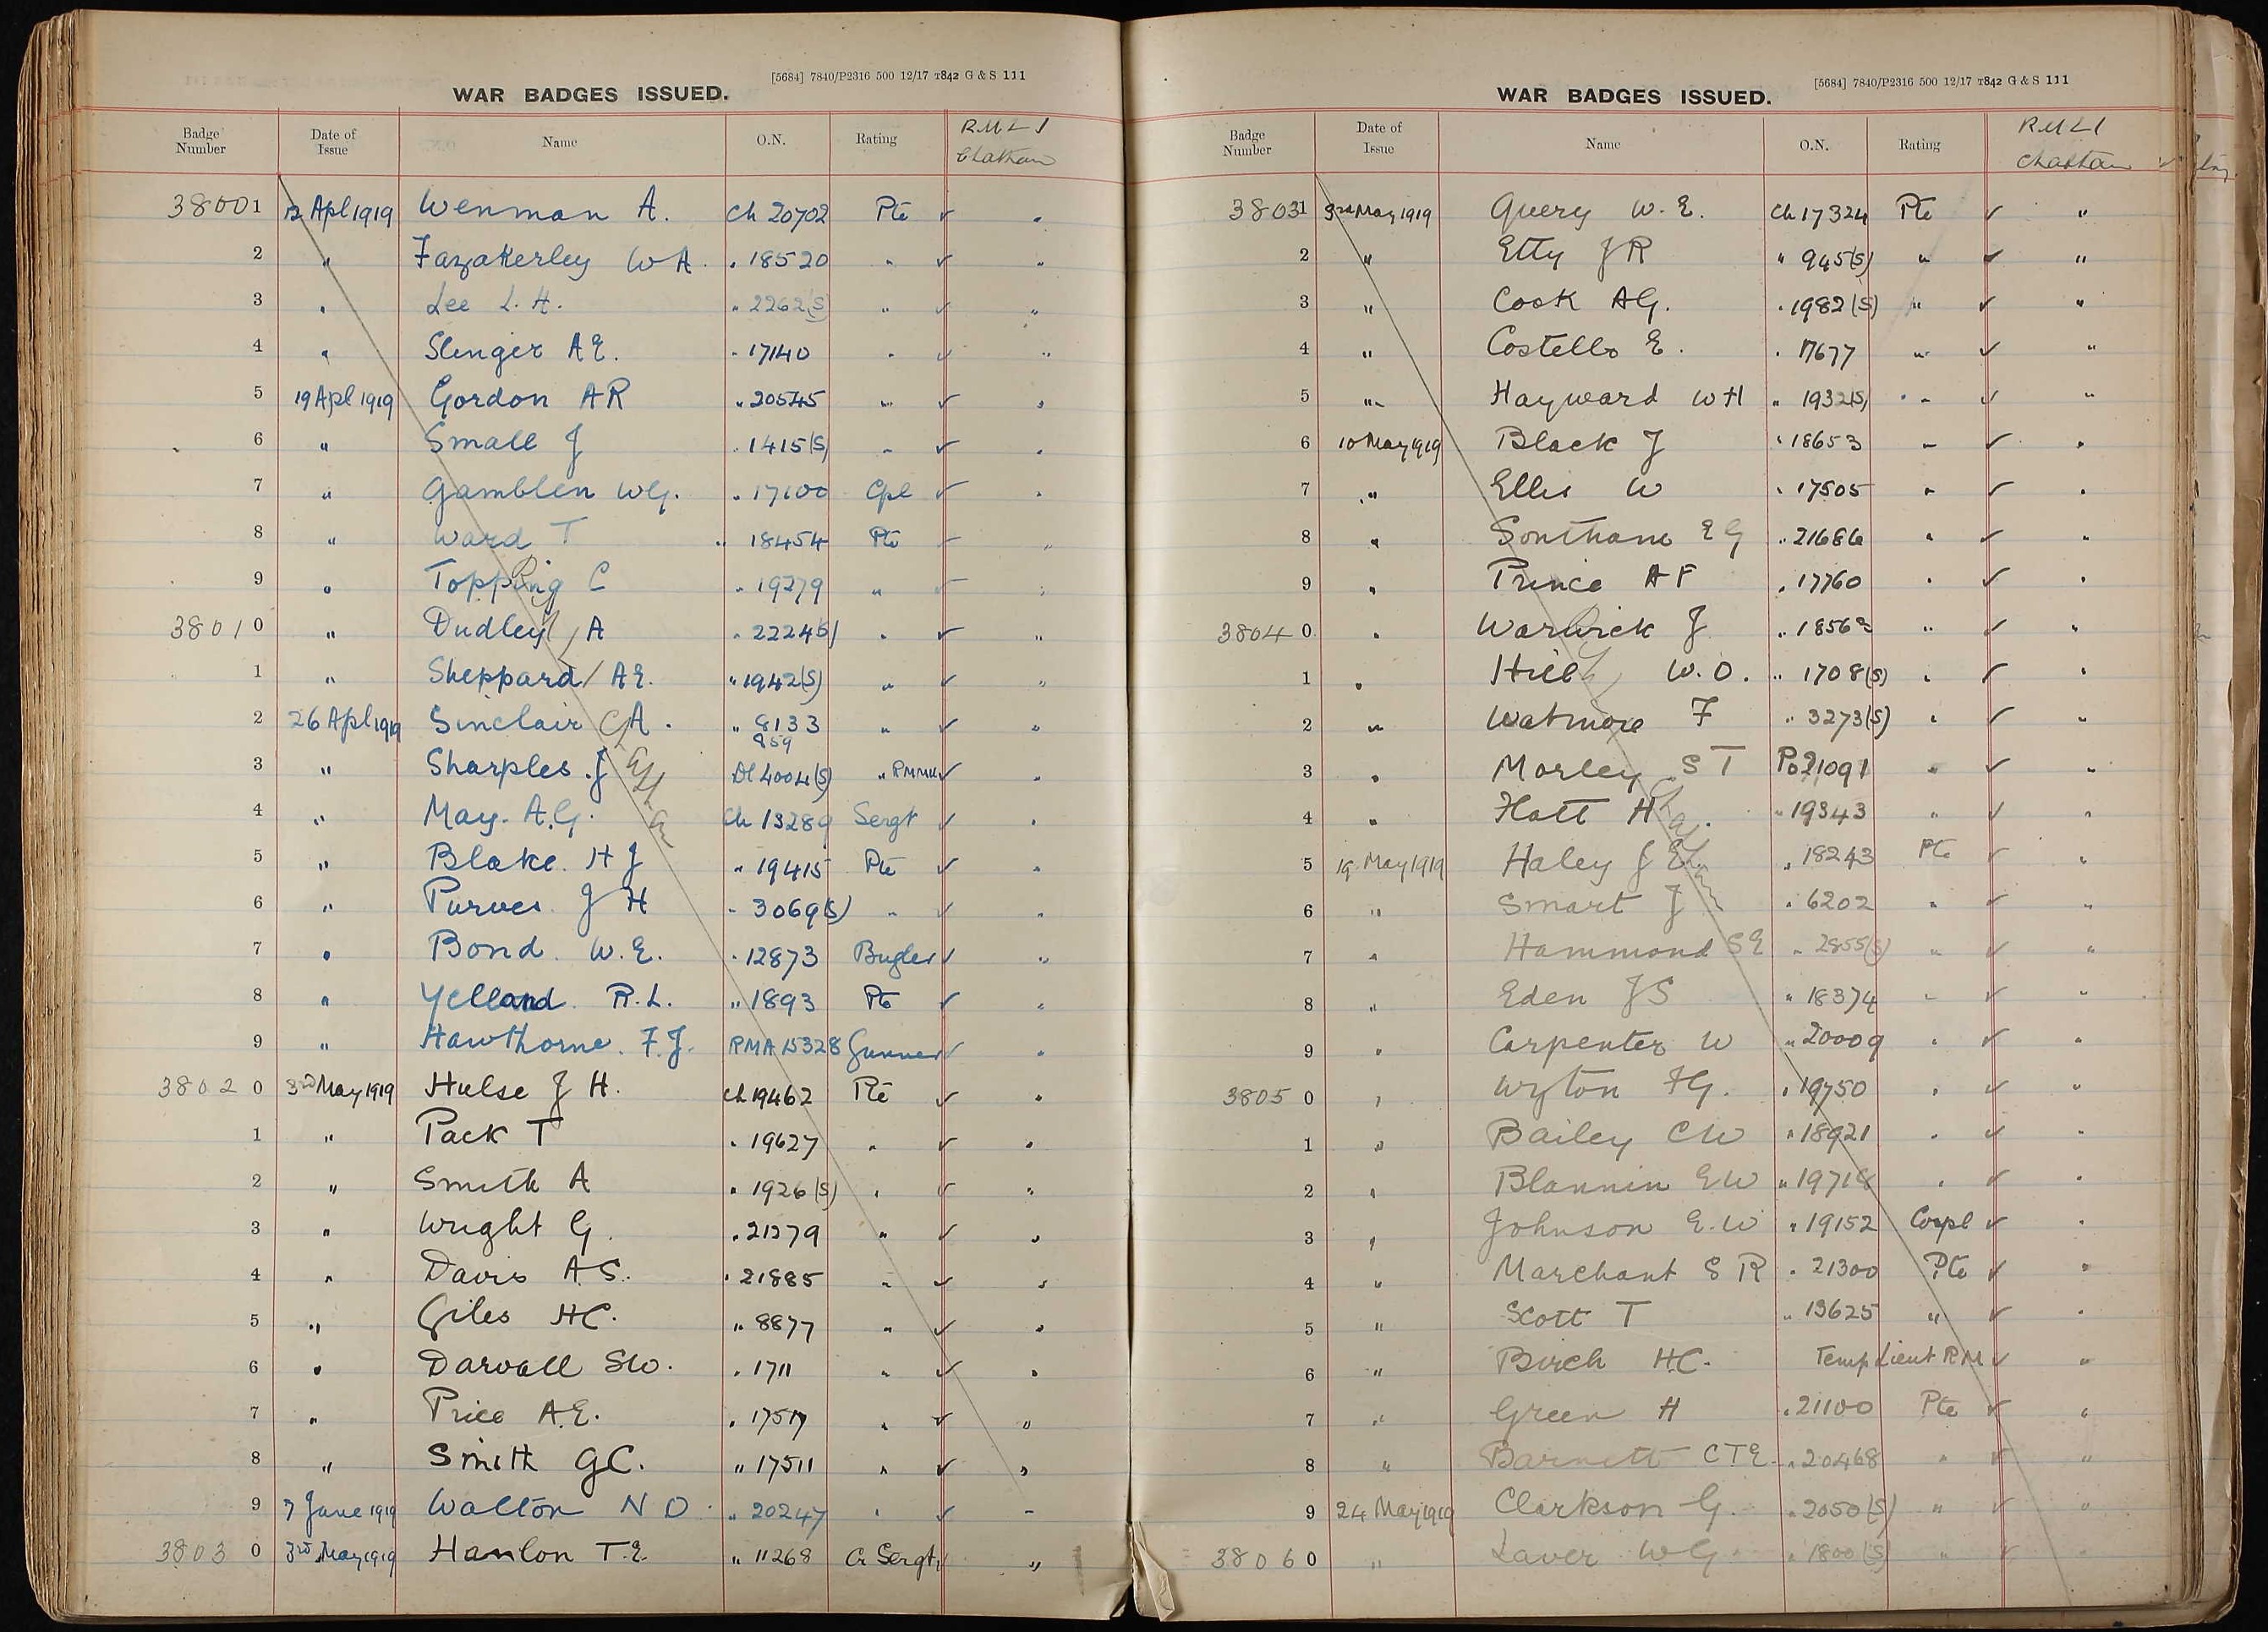 [5684] 7840/P2316 500 12/17 T842 G & S 111
WAR BADGES ISSUED.
Badge Number Date of Issue Name O.N. Rating RMLI Chatham
38001 12 Apl 1919 Wenman A. Ch 20702 Pte ✓ "
2 " Fazakerley W A. " 18520 " ✓ "
3 " Lee L. H. " 2262(S) " ✓ "
4 " Slenger A E. " 17140 " ✓ "
5 19 Apl 1919 Gordon A R " 20545 " ✓ "
6 " Small J " 1415(S) " ✓ "
7 " Gamblen W G. " 17100 Cpl ✓ "
8 " Ward T " 18454 Pte ✓ "
9 " Topping C " 19279 " ✓ "
38010 " Dudley A " 2224(S) " ✓ "
1 " Sheppard A E. " 1942(S) " ✓ "
2 26 Apl 1919 Sinclair A. " 8133 " ✓ "
3 " Sharples J 4004(S) " ✓ "
4 " May. A. G. Ch 13289 Sergt ✓ "
5 " Blake. H J " 19415 Pte ✓ "
6 " Purves. J H " 3069(S) " ✓ "
7 " Bond. W. E. " 12873 Bugler ✓ "
8 " Yelland. R. L. " 1893 Pte ✓ "
9 " Hawthorne. F. J. RMA 15328 Gunner ✓ "
38020 3rd May 1919 Hulse J H. Ch 19462 Pte ✓ "
1 " Pack T " 19627 " ✓ "
2 " Smith A " 1926(S) " ✓ "
3 " Wright G. " 21279 " ✓ "
4 " Davis A S. " 21885 " ✓ "
5 " Giles H C. " 8877 " ✓ "
6 " Darvall S W. " 1711 " ✓ "
7 " Price A. E. " 17517 " ✓ "
8 " Smith G C. " 17511 " ✓ "
9 7 June 1919 Walton N D " 20247 " ✓ "
38030 3rd May 1919 Hanlon T. E. " 11268 Cr Sergt ✓ "
Chatham
[5684] 7840/P2316 500 12/17 T842 G & S 111
WAR BADGES ISSUED.
Badge Number Date of Issue Name O.N. Rating RMLI Chatham
38031 3rd May 1919 Query W. E. Ch 17324 Pte ✓ "
2 " Etty J R " 945(S) " ✓ "
3 " Cook A G. " 1982(S) " ✓ "
4 " Costello E. " 17677 " ✓ "
5 " Hayward W H " 1932(S) " ✓ "
6 10 May 1919 Black J " 18653 " ✓ "
7 " Ellis W " 17505 " ✓ "
8 " Southam E G " 21686 " ✓ "
9 " Prince A F " 17760 " ✓ "
38040 " Warwick J " ✓ "
1 " Hill W. O. " 1708(S) " ✓ "
2 " Watmore F " 3273(S) " ✓ "
3 " Morley S T Po 21091 " ✓ "
4 " Hatt H " 19343 " ✓ "
5 19 May 1919 Haley J E " 18243 Pte ✓ "
6 " Smart J " 6202 " ✓ "
7 " Hammond S E " 2855(S) " ✓ "
8 " Eden J S " 18374 " ✓ "
9 " Carpenter W " 20009 " ✓ "
38050 " Wyton F G. " 19750 " ✓ "
1 " Bailey C W " 18921 " ✓ "
2 " Blannin E W " 19718 " ✓ "
3 " Johnson E. W " 19152 Corpl ✓ "
4 " Marchant S R " 21300 Pte ✓ "
5 " Scott T " 13625 " ✓ "
6 " Birch H C. Temp Lieut RM ✓ "
7 " Green H " 21100 Pte ✓ "
8 " Barnett C T E " 20468 " ✓ "
9 24 May 1919 Clarkson G. " 2050(S) " ✓ "
38060 " Laver W G. " 1800(S) " ✓ "
Chatham